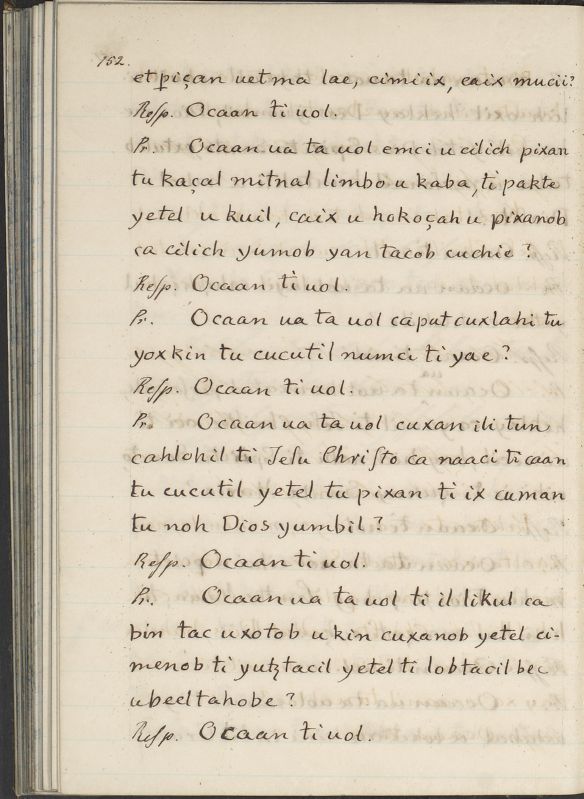 152.
etp̱içan uetma lae, cimi ix, caix mucii?
Resp. Ocaan ti uol.
Pr. Ocaan ua ta uol emci u cilich pixan
tu kaçal mitnal limbo u kaba, ti pakte
yetel u kuil, caix u hokoçah u pixanob
ca cilich yumob yan tacob cuchie?
Resp. Ocaan ti uol.
Pr. Ocaan ua ta uol caput cuxlahi tu
yoxkin tu cucutil numci ti yae?
Resp. Ocaan ti uol.
Pr. Ocaan ua ta uol cuxan ili tun
cahlohil ti Jesu Christo ca naaci ti caan
tu cucutil yetel tu pixan ti ix cuman
tu noh Dios yumbil?
Resp. Ocaan ti uol.
Pr. Ocaan ua ta uol ti il likul ca
bin tac uxotob u kin cuxanob yetel ci-
menob ti yutꜩtacil yetel ti lobtacil bec
ubeeltahobe?
Resp. Ocaan ti uol.